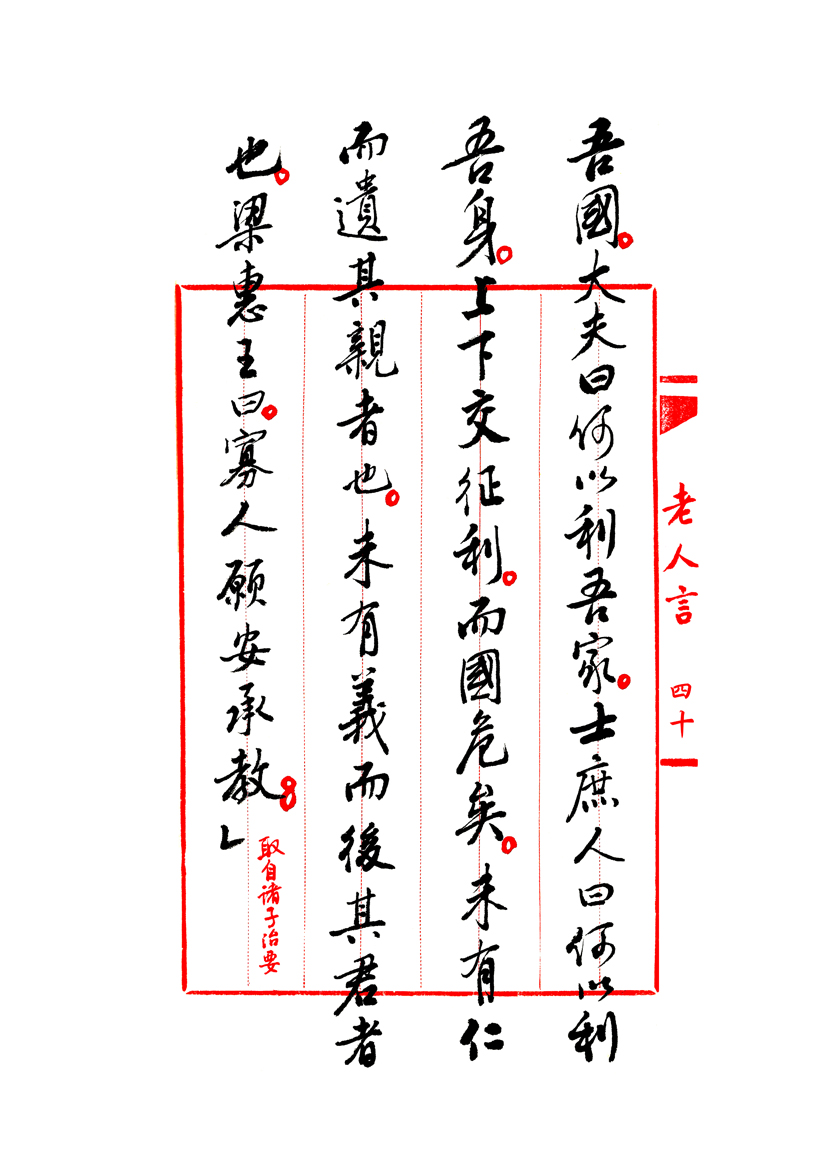 老人言 四十
吾國。大夫曰何以利吾家。士庶人曰何以利
吾身。上下交征利。而國危矣。未有仁
而遺其親者也。未有義而後其君者
也。梁惠王曰。寡人願安承教。。」
取自诸子治要